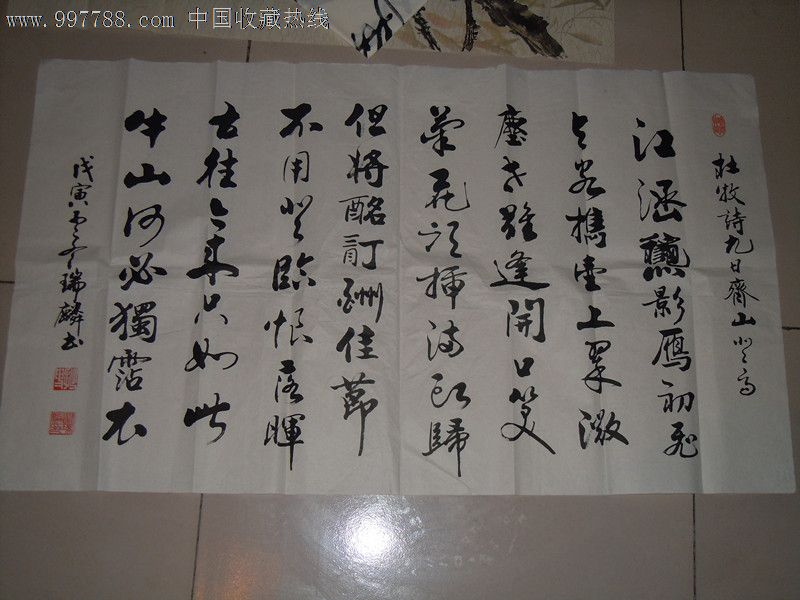 www.997788.com 中国收藏热线
杜牧詩九日齊山登高
江涵龝影鴈初飛
与客攜壺上翠微
塵世難逢開口笑
菊花須插滿頭歸
但將酩酊酬佳節
不用登臨恨落暉
古往今來只如此
牛山何必獨霑衣
戊寅冬瑞麟书